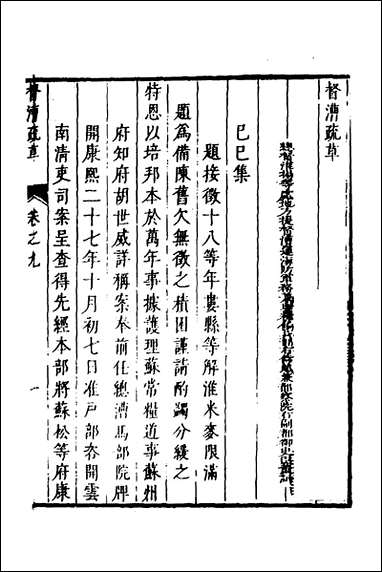 督漕疏草
總督淮揚等處地方提督漕運海防軍務
己巳集
題接徵十八等年婁縣等解淮米麥限滿
題爲備陳舊欠無徵之積困謹請酌蠲分緩之
特恩以培邦本於萬年事據護理蘇常糧道事蘇州
府知府胡世威詳稱案奉前任總漕馬部院牌
開康熙二十七年十月初七日准戸部咨開雲
南清吏司案呈查得先經本部將蘇松等府康
督漕疏草
卷之九
一